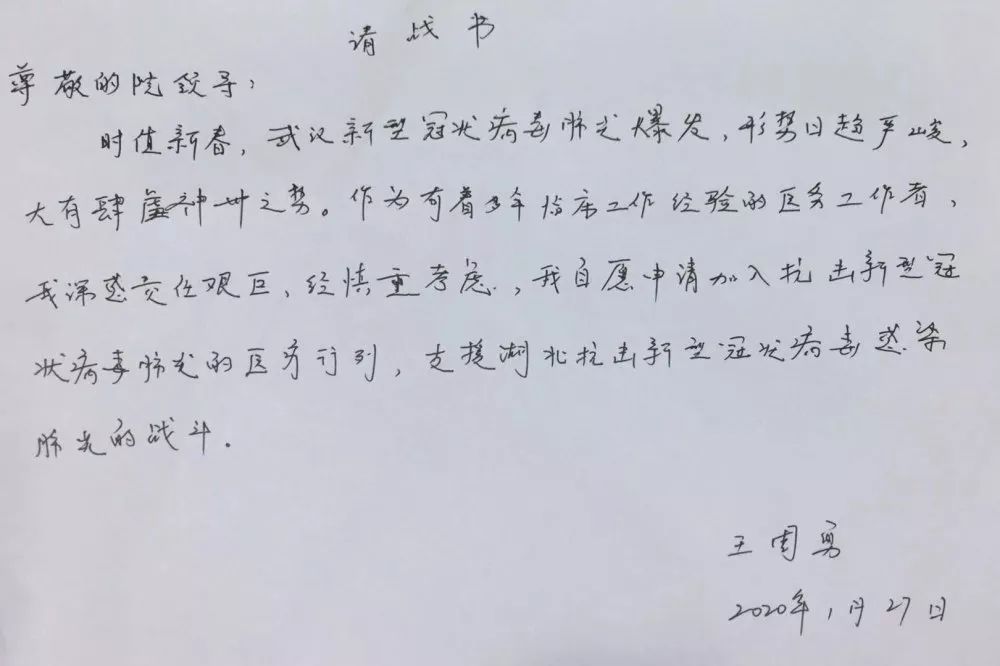 请战书
尊敬的院领导：
时值新春，武汉新型冠状病毒肺炎爆发，形势日趋严峻，
大有肆虐神州之势。作为有着多年临床工作经验的医务工作者，
我深感责任艰巨，经慎重考虑，我自愿申请加入抗击新型冠
状病毒肺炎的医疗行列，支援湖北抗击新型冠状病毒感染
肺炎的战斗．
王周勇
2020年1月27日